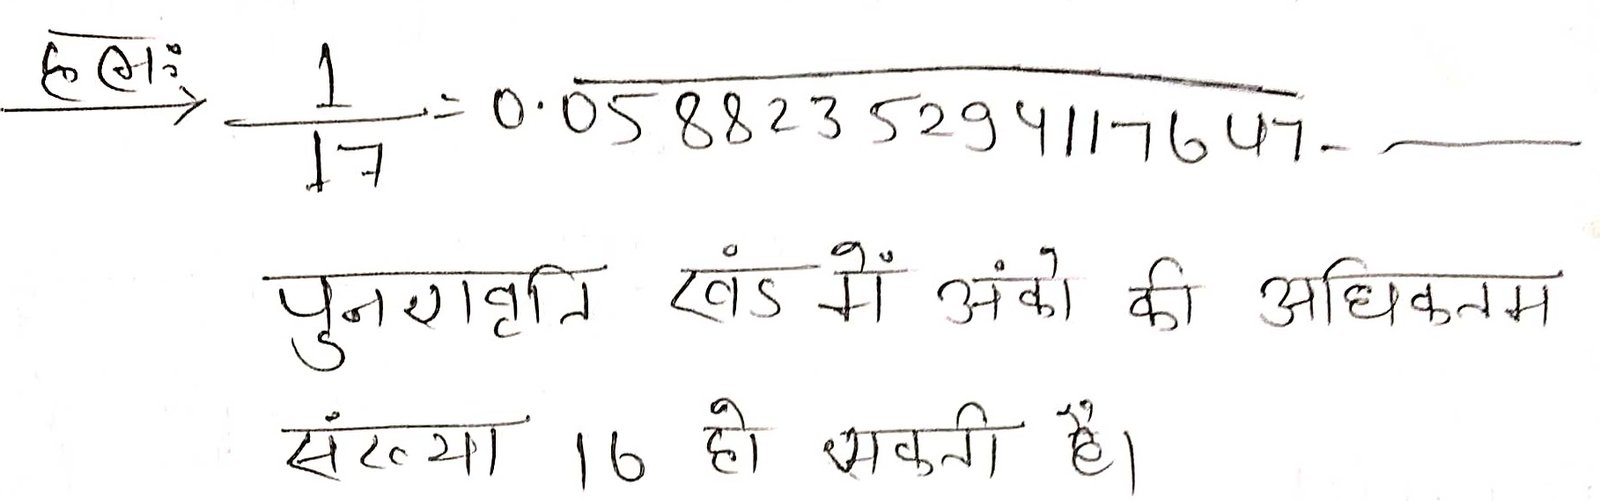 हलः 1/17 = 0.0588235294117647- —
पुनरावृति खंड में अंको की अधिकतम
संख्या 16 हो सकती है।